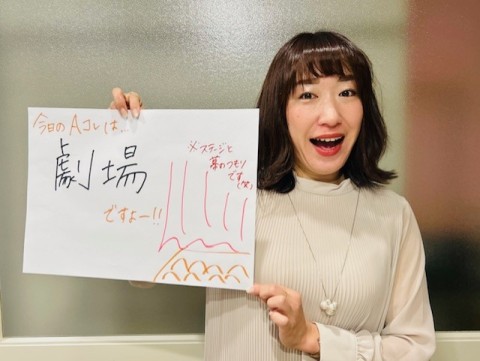 今日のAコレは、
劇場
ですよー!!
※ステージと
幕のつもり
です
(笑)